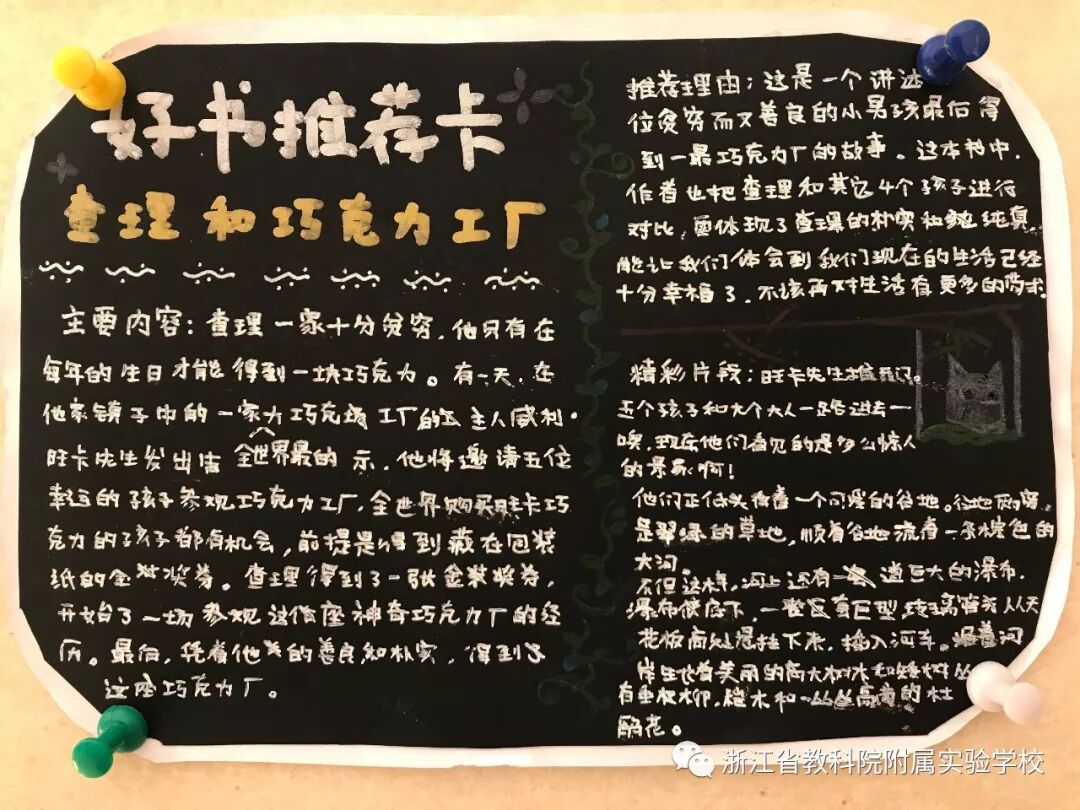 好书推荐卡
查理和巧克力工厂
主要内容：查理一家十分贫穷，他只有在
每年的生日才能得到一块巧克力。有一天，在
他家镇子中的一家巧克力工厂的主人威利·
旺卡先生发出告全世界最的示，他将邀请五位
幸运的孩子参观巧克力工厂，全世界购买旺卡巧
克力的孩子都有机会，前提是得到藏在包装
纸的金奖券。查理得到了一张金奖券，
开始了一场参观这座神奇巧克力厂的经
历。最后，凭着他的善良和朴实，得到了
这座巧克力厂。
推荐理由：这是一个讲述
位贫穷而又善良的小男孩最后得
到一最巧克力厂的故事。这本书中，
作者也把查理和其它4个孩子进行
对比，更体现了查理的朴实和纯真。
能让我们体会到我们现在的生活已经
十分幸福了，不该再对生活有更多的苛求。
精彩片段：旺卡先生推开门。
五个孩子和九个大人一路进去——
噢，现在他们看见的是多么惊人
的景象啊！
他们正低头看着一个可爱的谷地。谷地两旁
是翠绿的草地，顺着谷地流有一条棕色的
大河。
不但这样，河上还有一道巨大的瀑布，
瀑布底下，一些巨型玻璃管从天
花板高处悬挂下来，插入河中。沿着河
岸生长着美丽的高大树木和矮树丛
有垂柳，桤木和一丛丛高高的杜
鹃花。
浙江省教科院附属实验学校